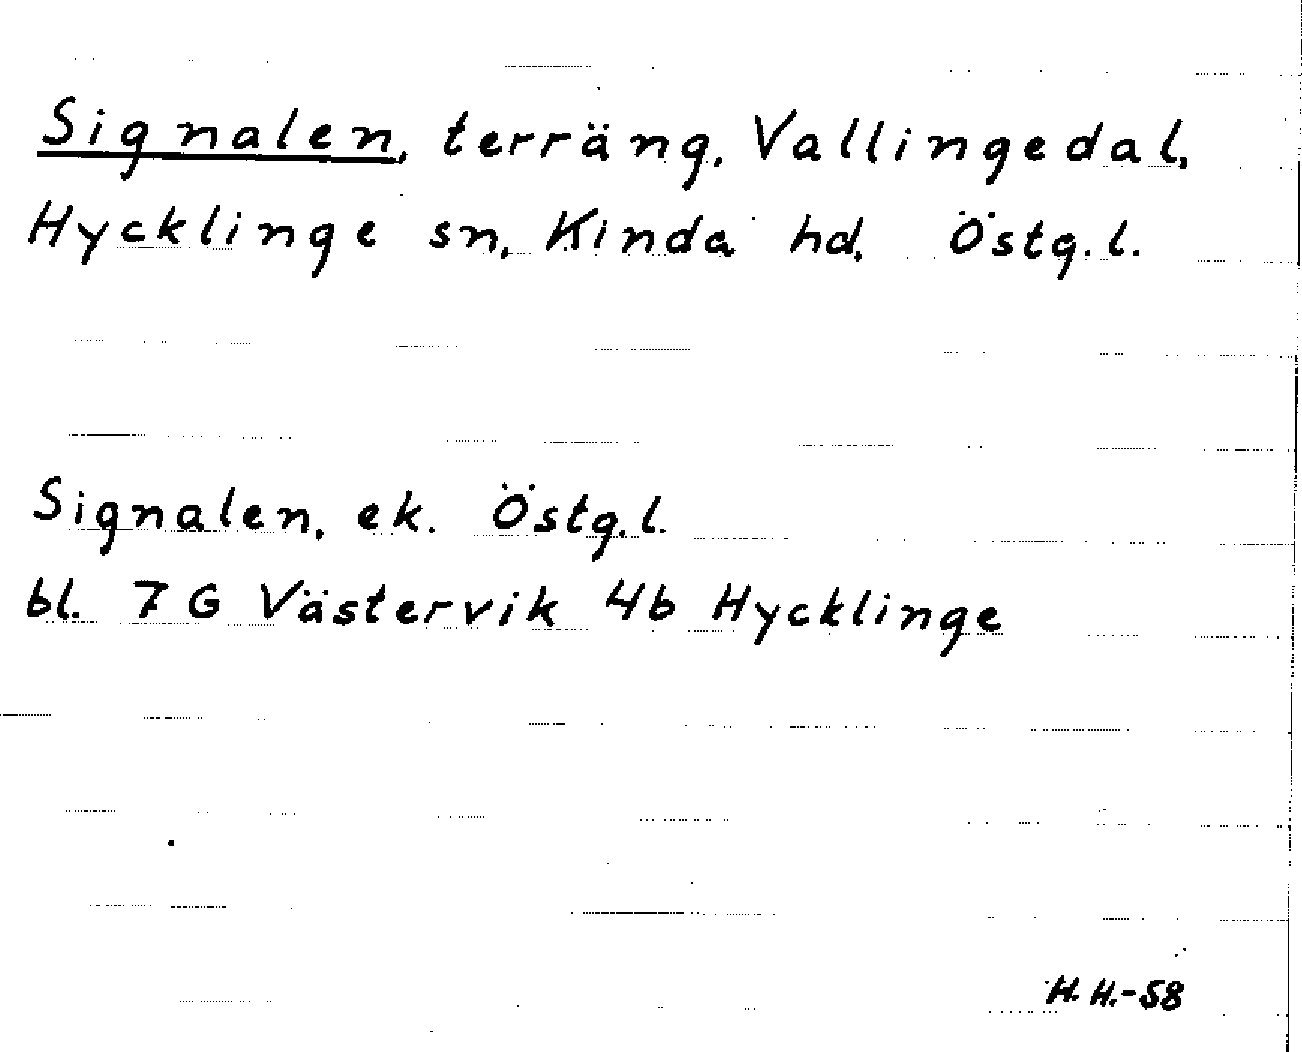 Signalen, terräng, Vallingedal,
Hycklinge sn, Kinda hd, Östg.l.
Signalen, ek. Östg.l.
bl. 7 G Västervik 4b Hycklinge
H.H.-58